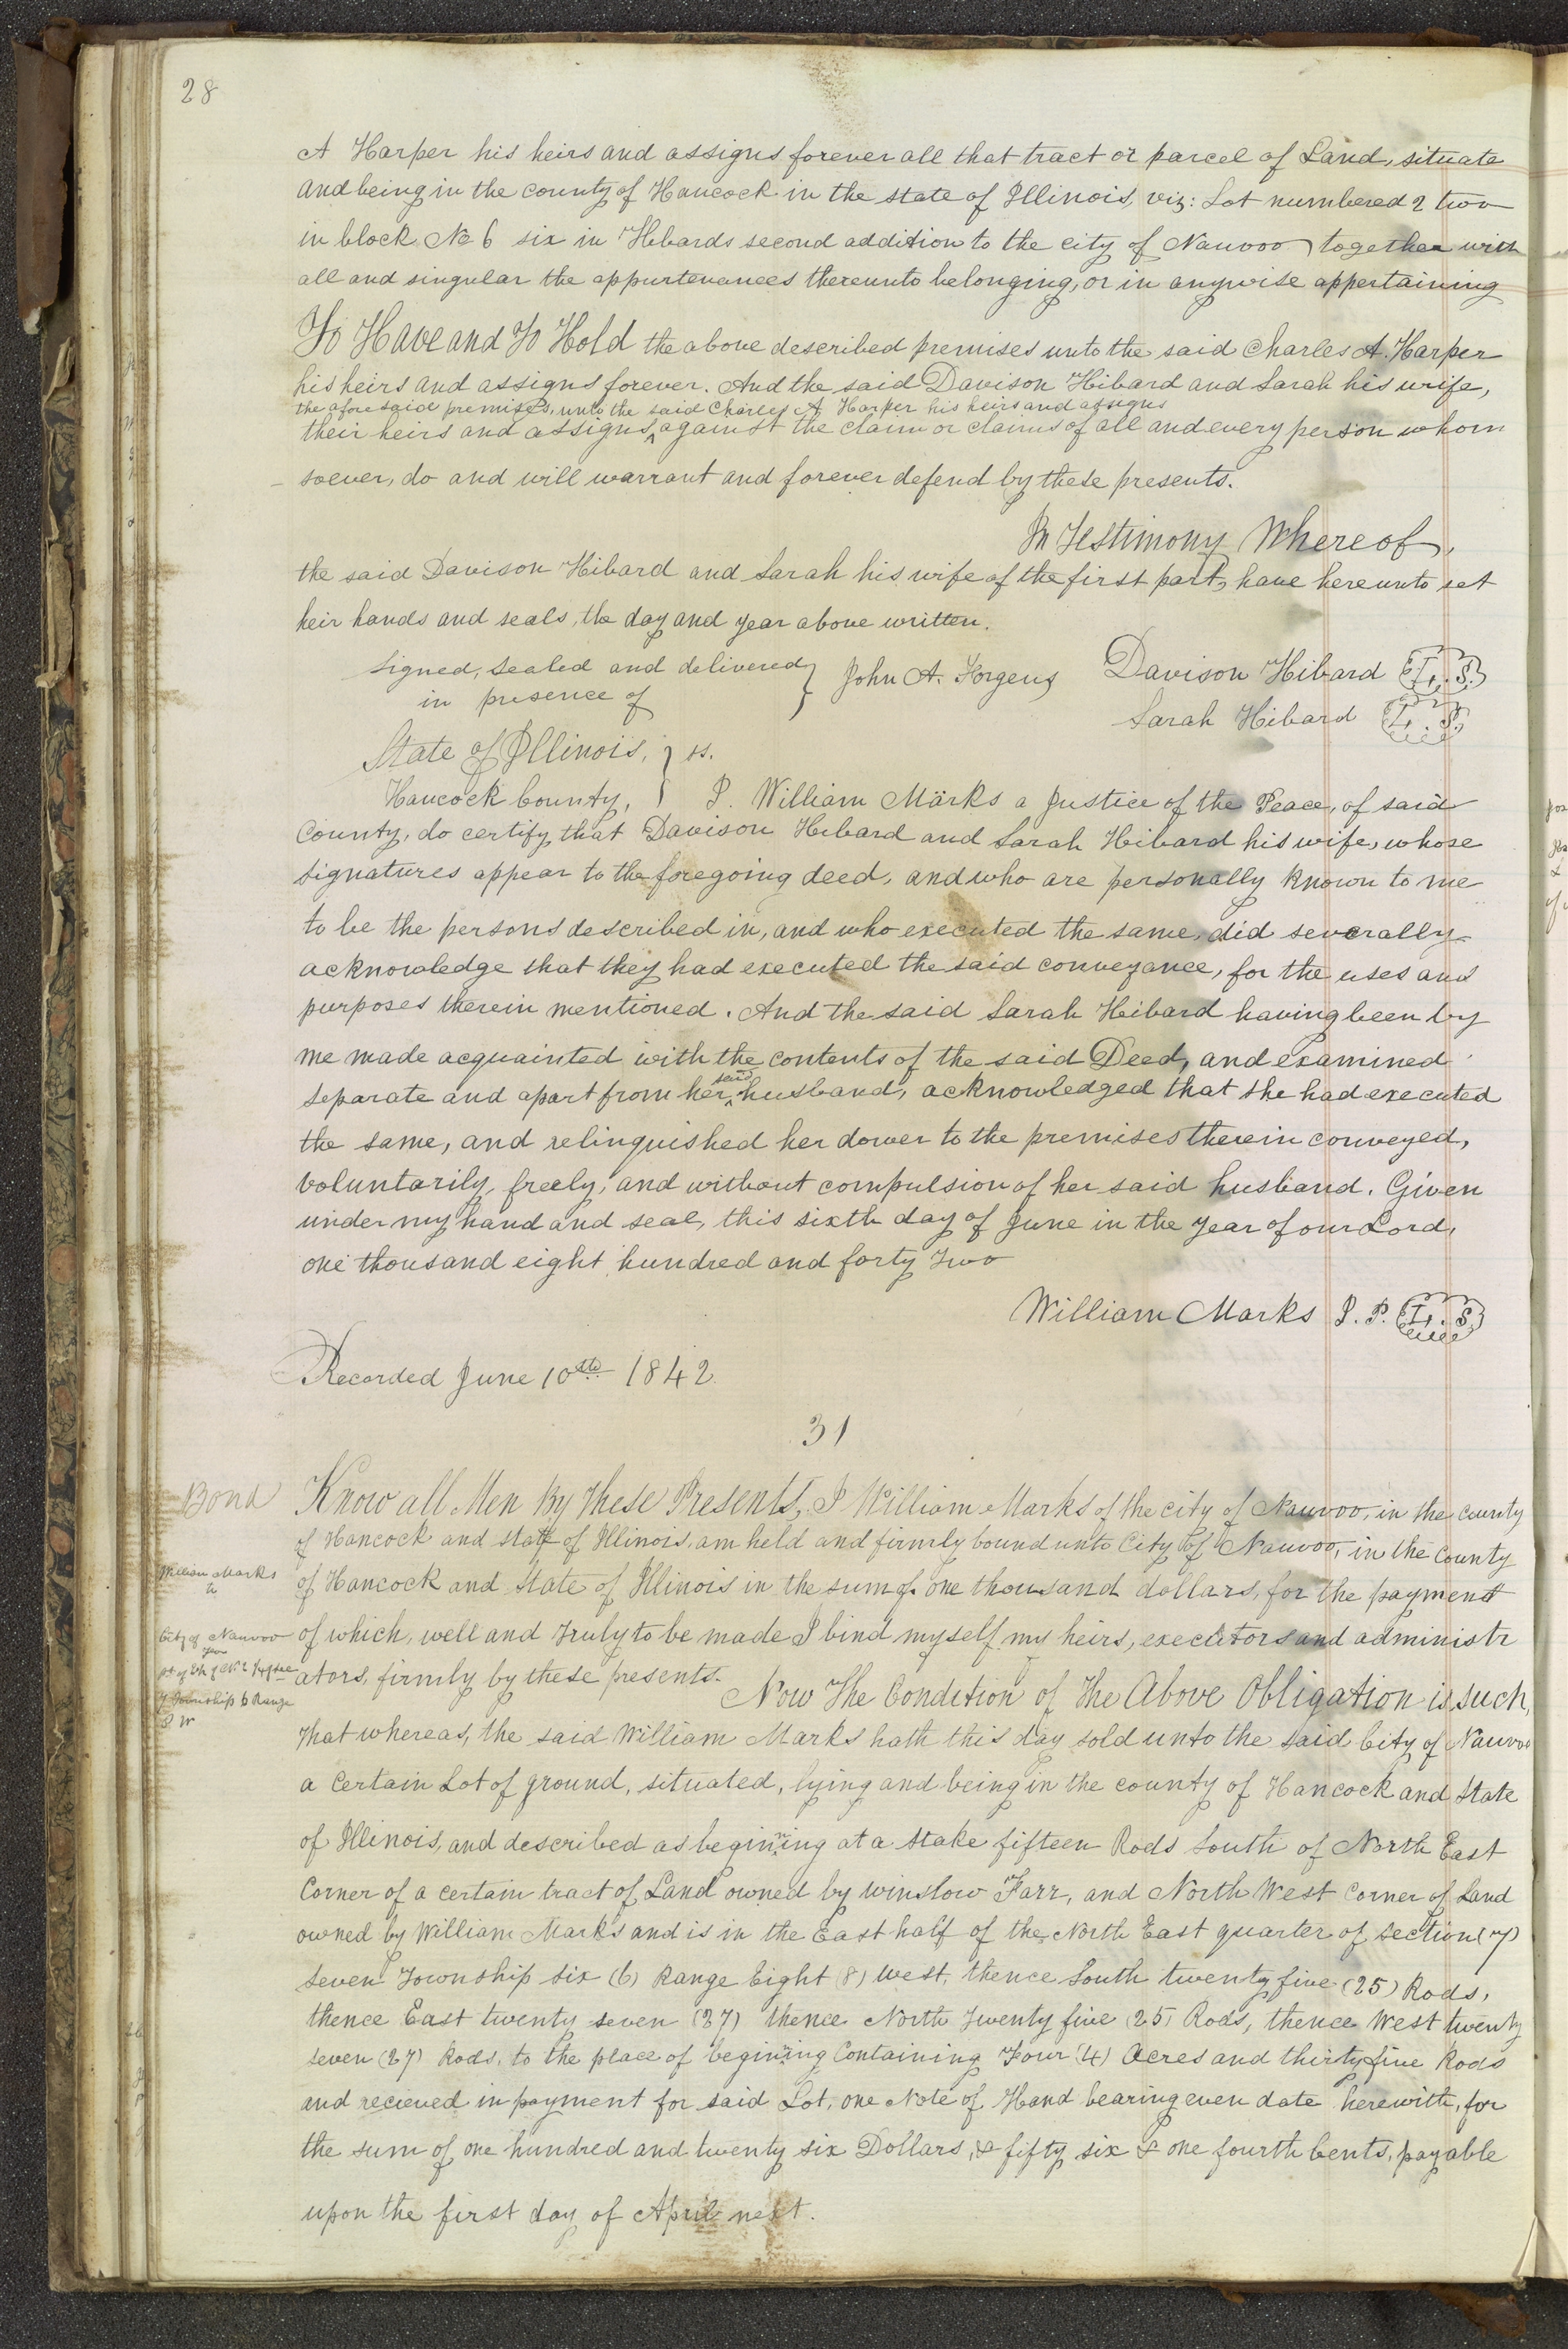 28
A Harper his heirs and assigns forever all that tract or parcel of Land, situate
and being in the county of Hancock in the state of Illinois, viz: Lot numbered 2 two
in block No 6 six in Hibards second addition to the city of Nauvoo together with
all and singular the appurtenances thereunto belonging, or in anywise appertaining
To Have and To Hold the above described premises unto the said Charles A. Harper
his heirs and assigns forever. And the said Davison Hibard and Sarah his wife,
the aforesaid premises, unto the said Charles A Harper his heirs and assigns
their heirs and assigns, ^ against the claim or claims of all and every person whom
- soever, do and will warrant and forever defend by these presents.
In Testimony Whereof,
the said Davison Hibard and Sarah his wife of the first part, have hereunto set
heir hands and seals, the day and year above written.
Signed, Sealed and delivered } John A. Forgeus Davison Hibard L. S.
in presence of Sarah Hibard L. S.
State of Illinois, } ss.
Hancock County, } I. William Marks a Justice of the Peace, of said
County, do certify that Davison Hibard and Sarah Hibard his wife, whose
signatures appear to the foregoing deed, and who are personally known to me
to be the persons described in, and who executed the same, did severally
acknowledge that they had executed the said conveyance, for the uses and
purposes therein mentioned. And the said Sarah Hibard having been by
me made acquainted with the contents of the said Deed, and examined
separate and apart from her ^ said husband, acknowledged that she had executed
the same, and relinquished her dower to the premises therein conveyed,
voluntarily, freely, and without compulsion of her said husband. Given
under my hand and seal, this sixth day of June in the year of our Lord,
one thousand eight hundred and forty Two
William Marks J. P. L. S.
Recorded June 10th 1842.
31
Bond
Know all Men By These Presents, I William Marks of the city of Nauvoo, in the county
of Hancock and state of Illinois, am held and firmly bound unto City of Nauvoo, in the County
William Marks
to
of Hancock and State of Illinois in the sum of one thousand dollars, for the payment
City of Nauvoo
of which, well and truly to be made I bind myself my heirs, executors and administr
ators, firmly by these presents.
7 Township 6 Range
8 W
Now The Condition of The Above Obligation is such,
That whereas, the said William Marks hath this day sold unto the said City of Nauvoo
a Certain Lot of ground, situated, lying and being in the county of Hancock and State
of Illinois, and described as beginning at a Stake fifteen Rods South of North East
Corner of a certain tract of Land owned by Winslow Farr, and North West Corner of Land
owned by William Marks and is in the East half of the North East quarter of section (7)
seven Township six (6) Range Eight (8) West, thence South twenty five (25) Rods,
thence East twenty seven (27) thence North Twenty five (25) Rods, thence West twenty
seven (27) Rods, to the place of begining Containing Four (4) Acres and thirty five Rods
and recieved in payment for said Lot, one Note of Hand bearing even date herewith, for
the sum of one hundred and twenty six Dollars, & fifty six & one fourth Cents, payable
upon the first day of April next.